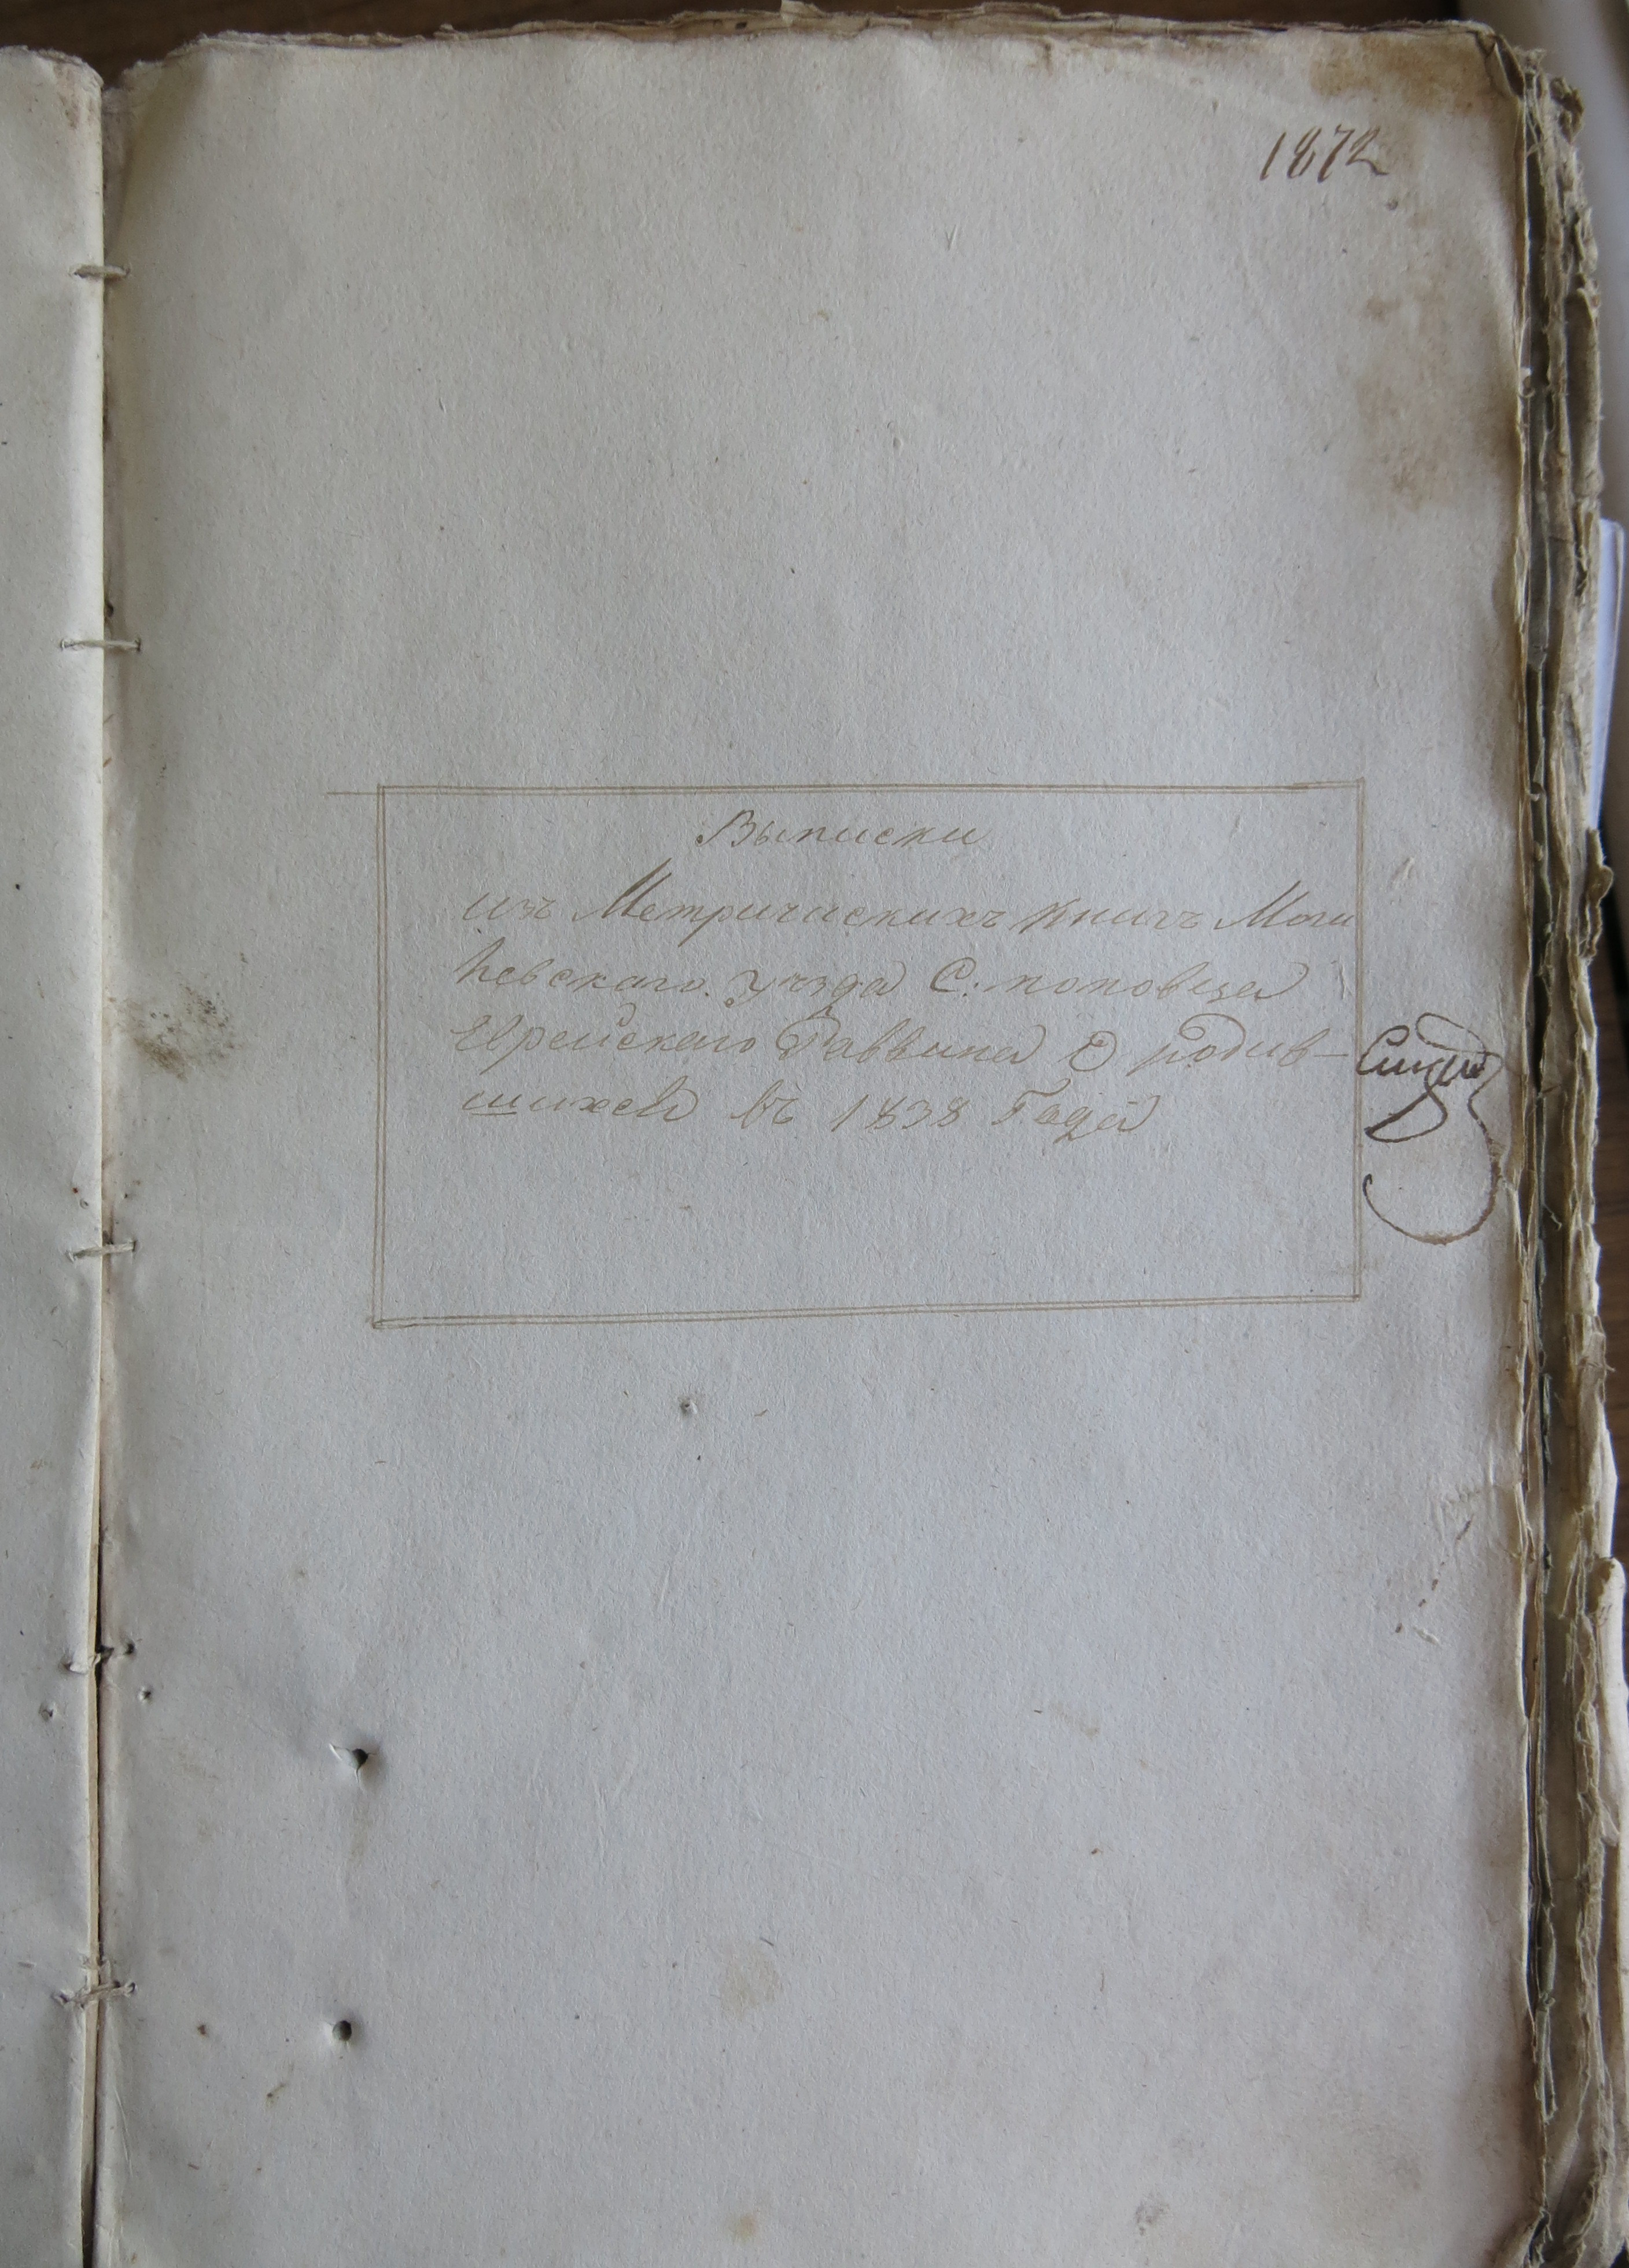 1872
Выписки
изъ Метрическихъ книгъ Моги
левскаго уезда С: поповеца
Еврейскаго Раввина О родив-
шихся въ 1838 Года